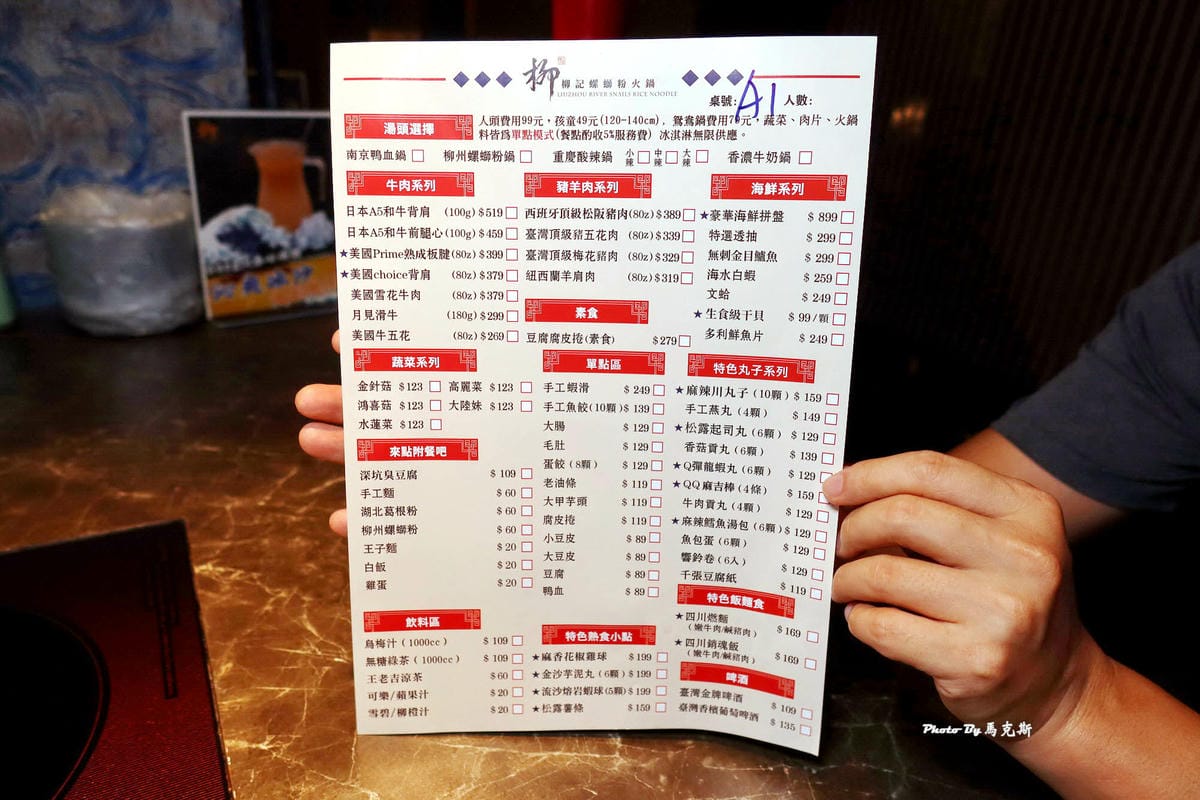 柳
柳記螺螄粉火鍋
LIUZHOU RIVER SNAILS RICE NOODLE
桌號:A1 人數:
湯頭選擇
人頭費用99元，孩童49元(120-140cm)，鴛鴦鍋費用79元，蔬菜、肉片、火鍋
料皆爲單點模式(餐點酌收5%服務費) 冰淇淋無限供應。
南京鴨血鍋 柳州螺螄粉鍋 重慶酸辣鍋 小辣 中辣 大辣 香濃牛奶鍋
牛肉系列
日本A5和牛背肩 (100g) $519
日本A5和牛前腿心(100g) $459
★美國Prime熟成板腱(8oz) $399
★美國choice背肩 (8oz) $379
美國雪花牛肉 (8oz) $379
月見滑牛 (180g) $299
美國牛五花 (8oz) $269
豬羊肉系列
西班牙頂級松阪豬肉(8oz) $389
臺灣頂級豬五花肉 (8oz) $339
臺灣頂級梅花豬肉 (8oz) $329
紐西蘭羊肩肉 (8oz) $319
素食
豆腐腐皮捲(素食) $279
海鮮系列
★豪華海鮮拼盤 $ 899
特選透抽 $ 299
無刺金目鱸魚 $ 299
海水白蝦 $ 259
文蛤 $ 249
★生食級干貝 $ 99/顆
多利鮮魚片 $ 249
蔬菜系列
金針菇 $123 高麗菜 $123
鴻喜菇 $123 大陸妹 $123
水蓮菜 $123
來點附餐吧
深坑臭豆腐 $ 109
手工麵 $ 60
湖北葛根粉 $ 60
柳州螺螄粉 $ 60
王子麵 $ 20
白飯 $ 20
雞蛋 $ 20
飲料區
烏梅汁 (1000cc) $ 109
無糖綠茶 (1000cc) $ 109
王老吉涼茶 $ 60
可樂/蘋果汁 $ 20
雪碧/柳橙汁 $ 20
單點區
手工蝦滑 $ 249
手工魚餃(10顆) $ 139
大腸 $ 129
毛肚 $ 129
蛋餃 (8顆) $ 129
老油條 $ 119
大甲芋頭 $ 119
腐皮捲 $ 119
小豆皮 $ 89
大豆皮 $ 89
豆腐 $ 89
鴨血 $ 89
特色熱食小點
★麻香花椒雞球 $199
★金沙芋泥丸 (6顆) $199
★流沙熔岩蝦球(5顆) $199
★松露薯條 $159
特色丸子系列
★麻辣川丸子 (10顆) $ 159
手工燕丸 (4顆) $ 149
★松露起司丸 (6顆) $ 129
香菇貢丸 (6顆) $ 139
★Q彈龍蝦丸 (6顆) $ 129
★QQ麻吉棒 (4條) $ 159
牛肉貢丸 (4顆) $ 129
★麻辣鱈魚湯包 (6顆) $ 129
魚包蛋 (6顆) $ 129
響鈴卷 (6入) $ 129
千張豆腐紙 $ 119
特色飯麵食
★四川燃麵 $ 169
(嫩牛肉/鹹豬肉)
★四川銷魂飯 $ 169
(嫩牛肉/鹹豬肉)
啤酒
臺灣金牌啤酒 $ 109
臺灣香檳葡萄啤酒 $ 135
Photo By 馬克斯